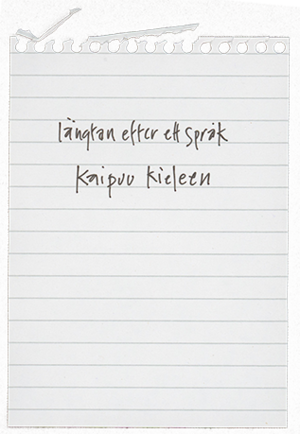 längtan efter ett språk
Kaipuu kieleen